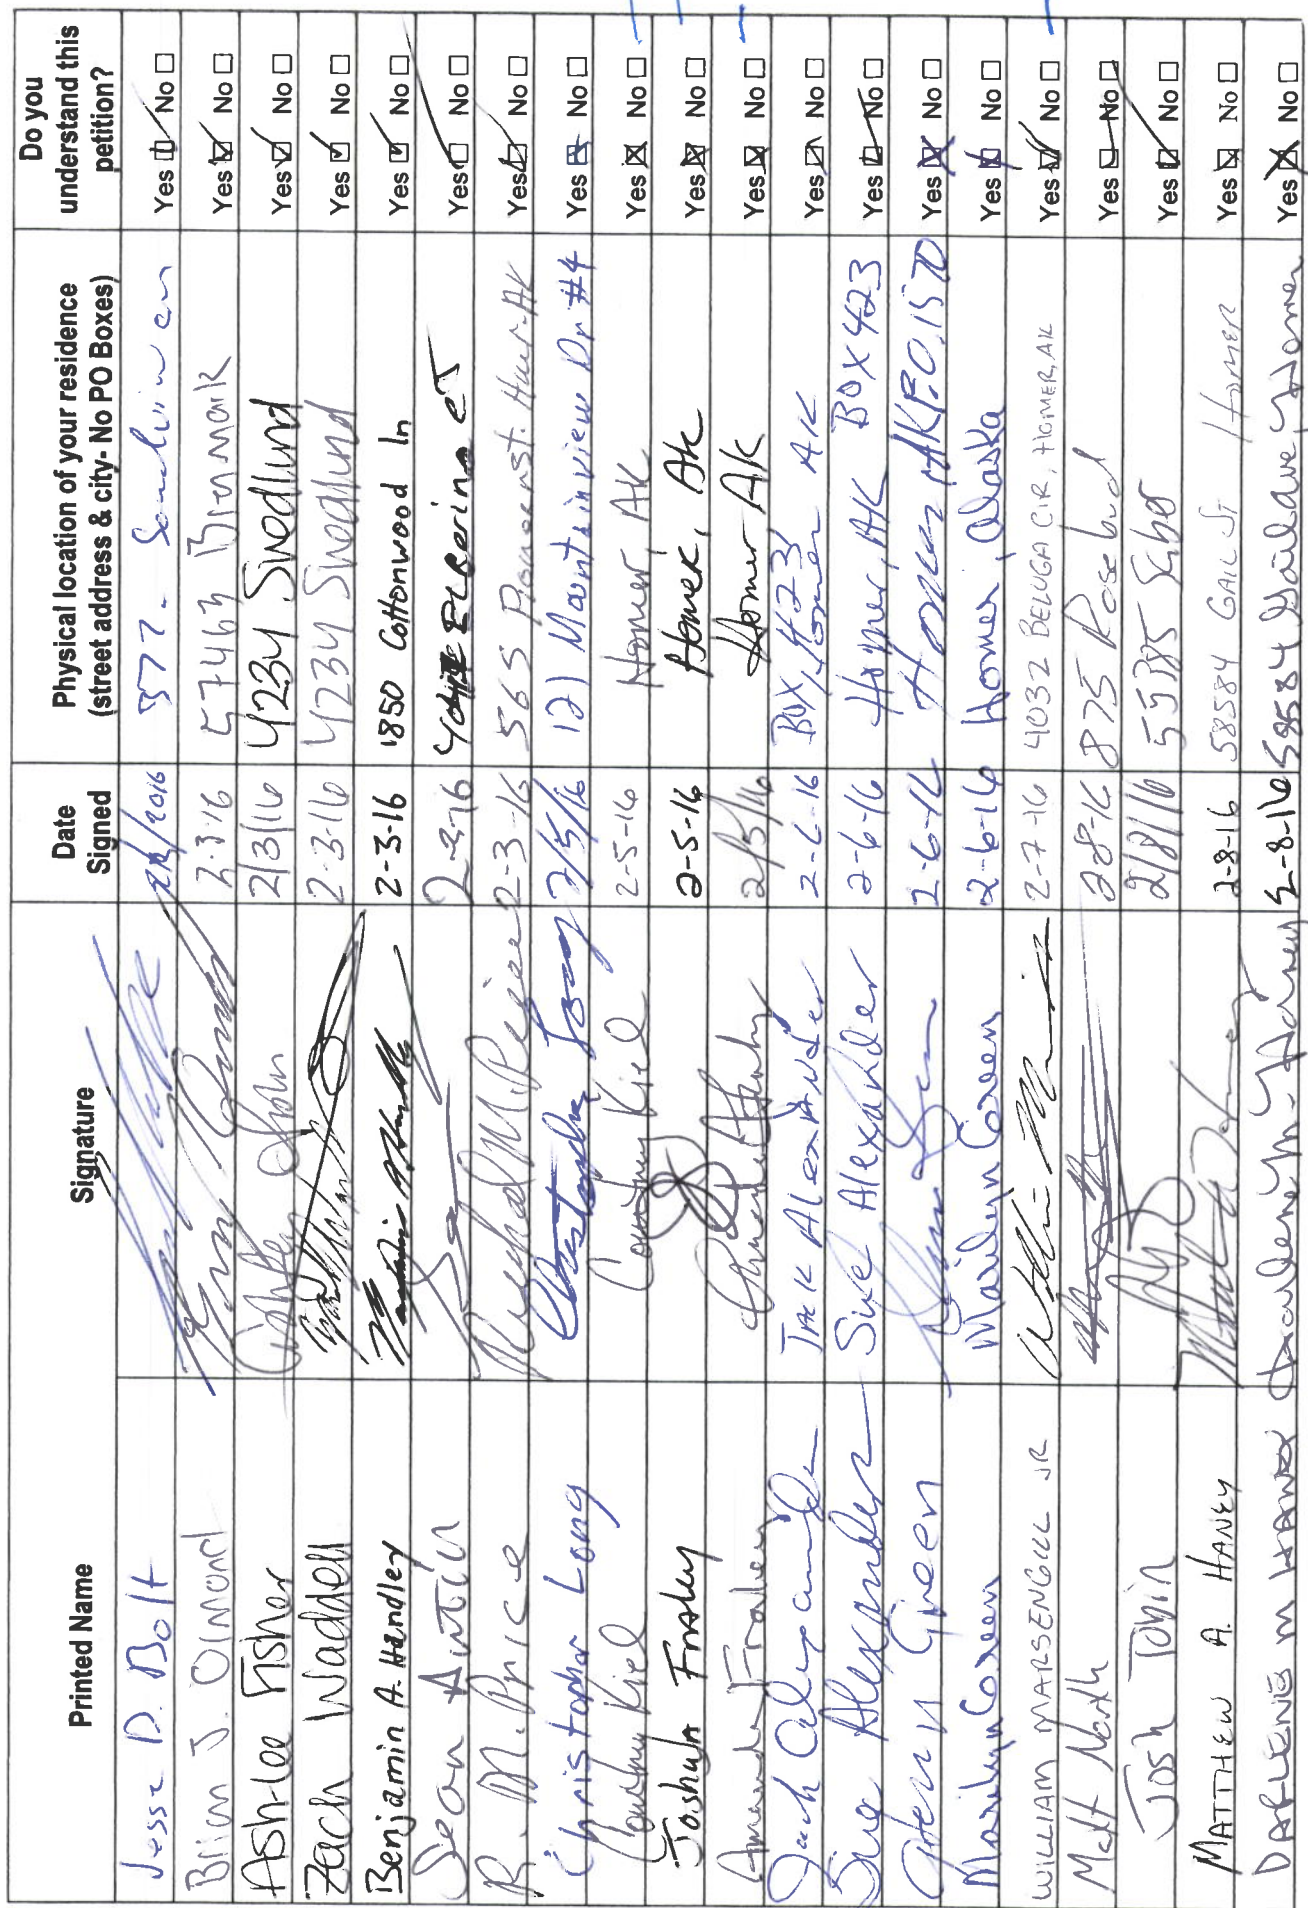 Printed Name Signature Date Signed Physical location of your residence (street address & city- No PO Boxes) Do you understand this petition?
Jesse D. Bolt 2016 577 Yes No
Brian J. Olmond 2-3-16 57463 Yes No
Ash-lee Fisher 2/3/16 4234 Svedlund Yes No
Zach Waddell 2-3-16 4234 Svedlund Yes No
Benjamin A. Handley 2-3-16 1850 Cottonwood ln Yes No
Sean 2-3-16 Yes No
R. M. Price 2-3-16 565 Yes No
Christopher Long 2/5/16 121 Mountainview Dr #4 Yes No
Courtney Kiel Courtney Kiel 2-5-16 Homer, AK Yes No
Joshua Fraley 2-5-16 Homer, AK Yes No
Amanda Fraley 2/5/16 Homer AK Yes No
Jack Alexander JACK ALEXANDER 2-6-16 BOX 423 Homer AK Yes No
Sue Alexander Sue Alexander 2-6-16 Homer, AK BOX 423 Yes No
Green 2-6-16 Homer AK P.O. 1570 Yes No
Marilyn Green Marilyn Green 2-6-16 Homer, Alaska Yes No
WILLIAM MARSENGILL JR 2-7-16 4032 BELUGA CIR, HOMER, AK Yes No
Matt North 2-8-16 875 Rosebud Yes No
Josh Tobin 2/8/16 55385 Yes No
MATTHEW A. HANEY 2-8-16 58584 GAIL ST HOMER Yes No
DARLENE M HANEY Darlene M. Haney 2-8-16 58584 Gail ave, Homer Yes No